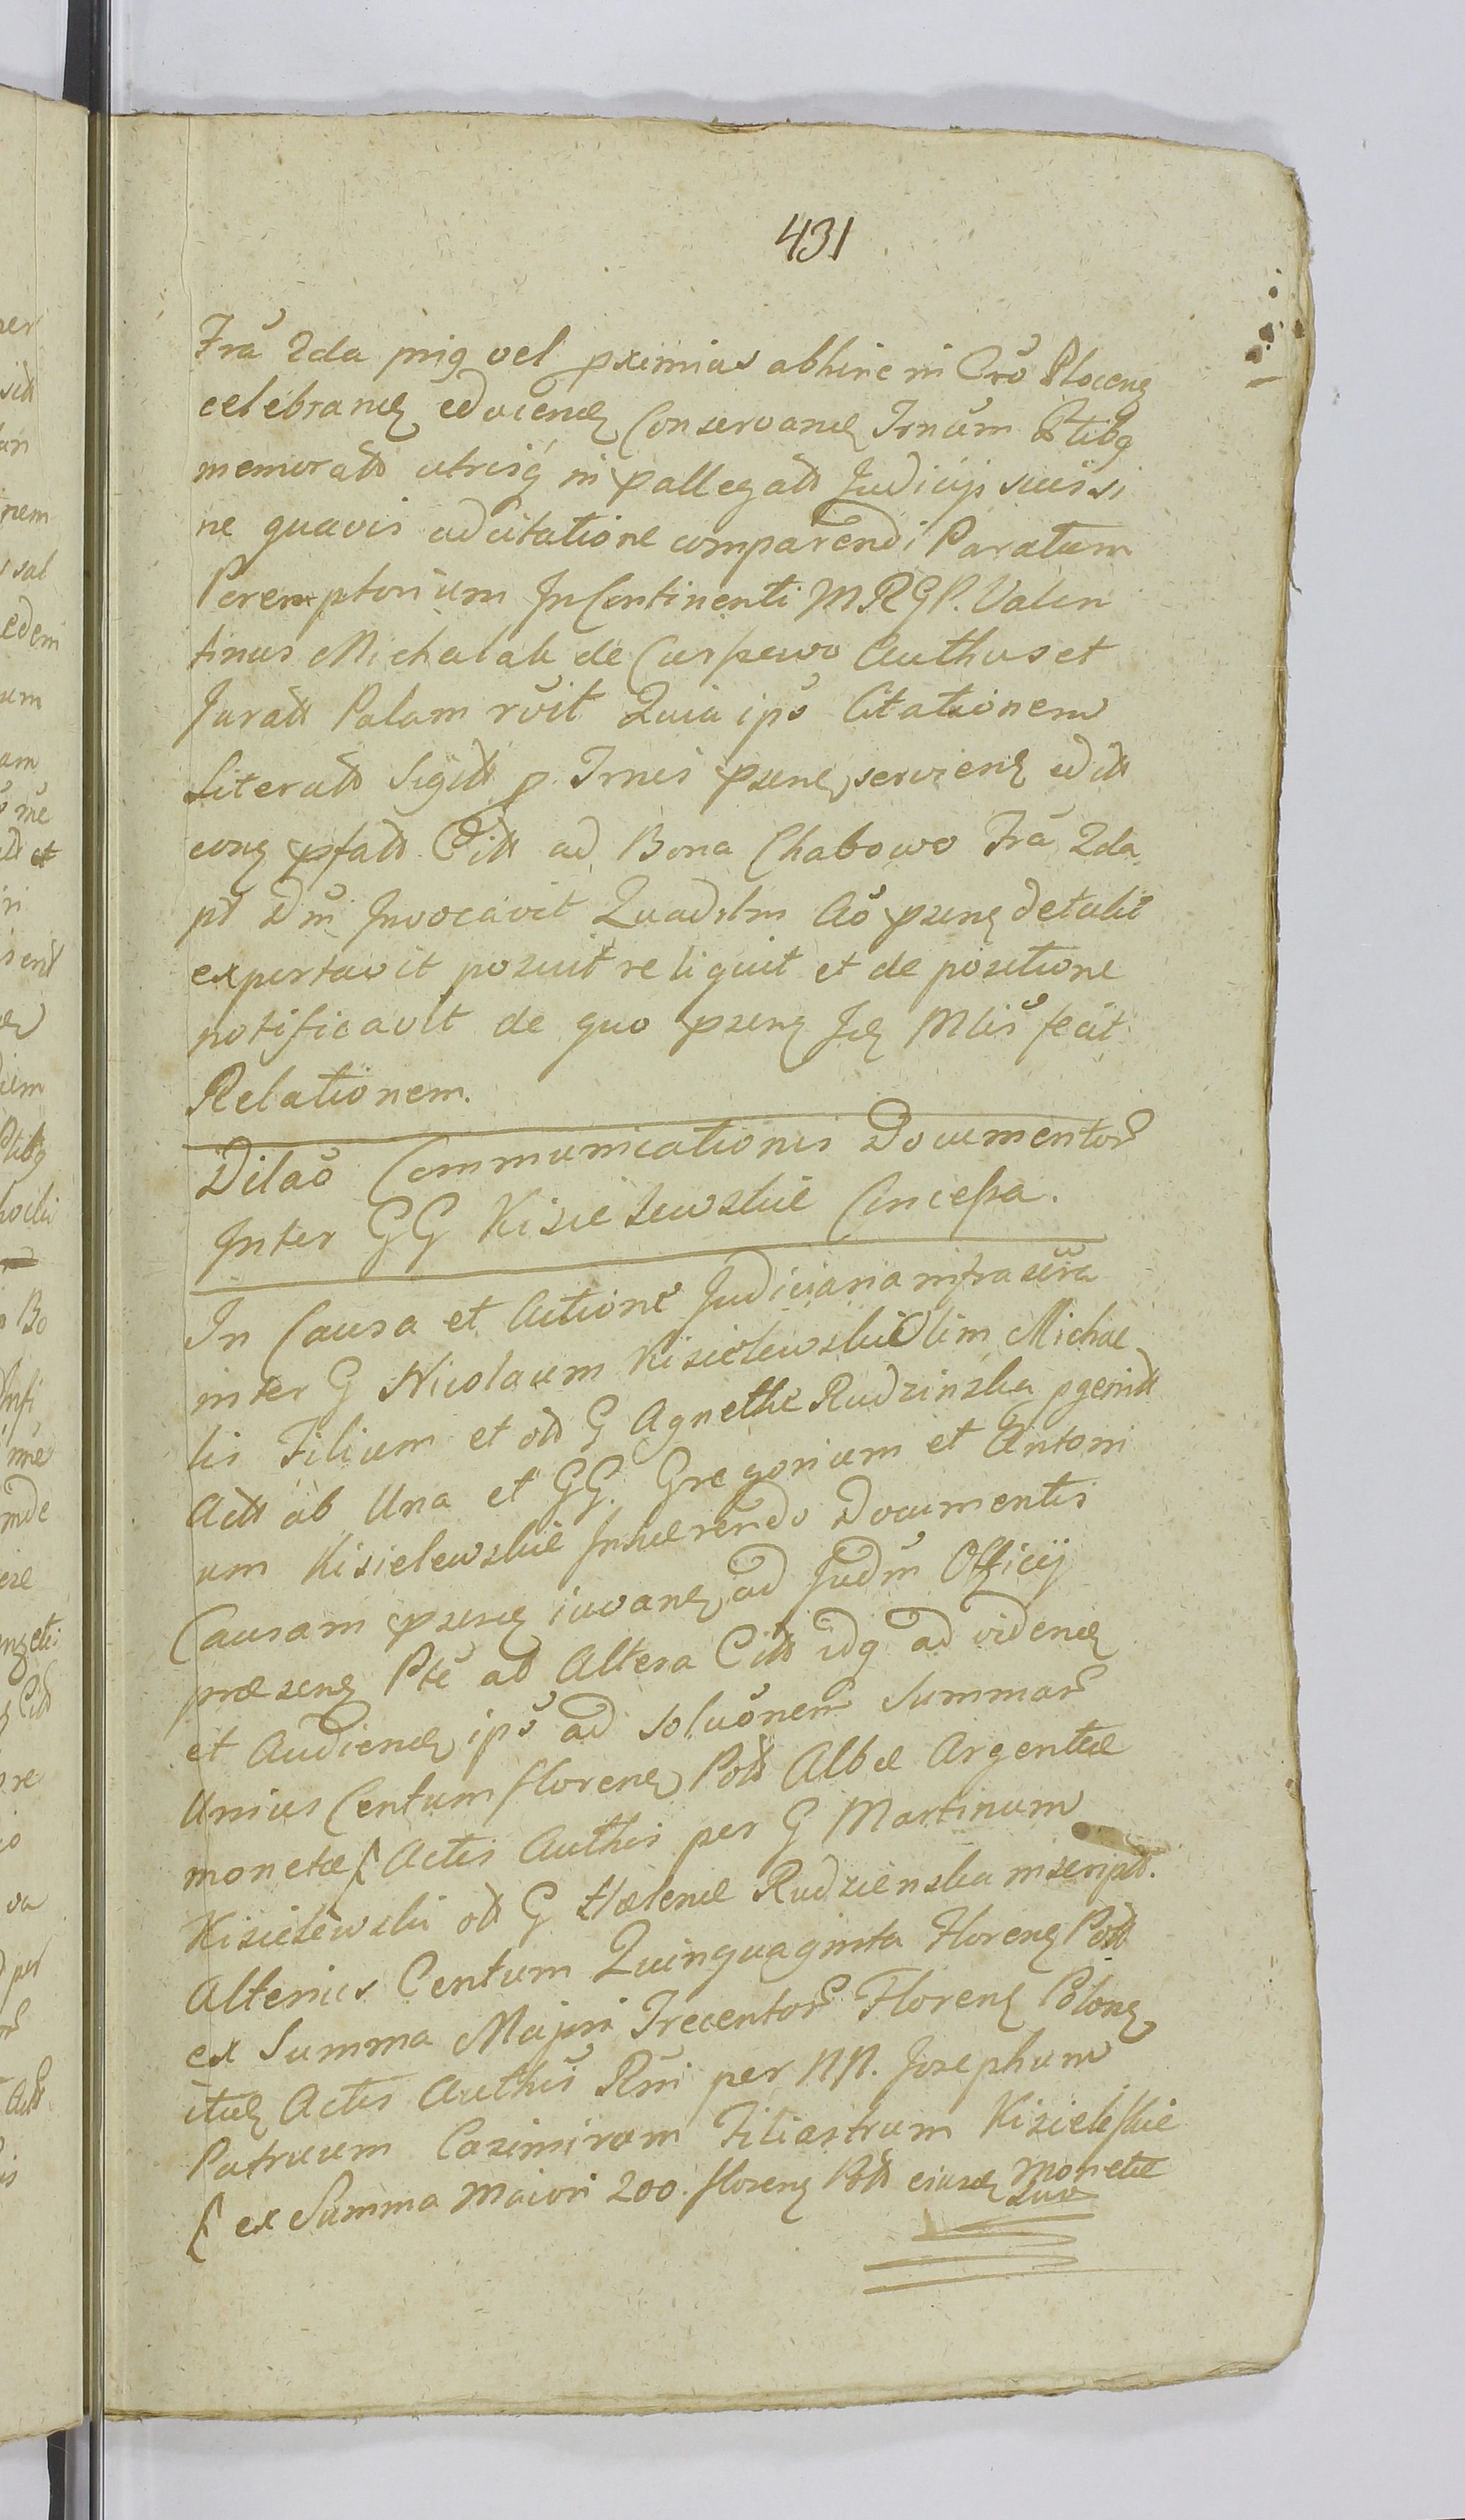 431
Fra 2da prig vel pximias abhinc in Cro Plocen
celebrand educend Conservand Trnum Ptibq
memoratt utrisq in pallegatt Judicijs suis si
ne quavis adcitatione comparendi Paratum
Peremptorium In Continenti MRGP. Valen
tinus Michalak de Carpewo Authus et
Juratt Palam rvit Quia ips Citationem
Literatt Sigitt p Trnis psens serviens editt
cong pfatt Citt ad Bona Chabowo Fra 2da
pt Dm Invocavit Quadrlm Ao psens detulit
exportavit posuit reliquit et de positione
notificavit de quo psens Jd Mlis fecit
Relationem.
Dilao Communicationis Documentor
Inter GG Kisielewskie Concessa.
In Causa et Actione Judiciaria infrascra
inter G Nicolaum Kisielewskie Olim Michae
lis Filium et ott G Agnethe Rudzinska pgenitt
Actt ab Una et GG. Gregorium et Antoni
um Kisielewskie Inhaerendo Documentis
Causam psens iuvand ad Judm Officij
praesens Pte ab Altera Citt idq ad vidend
et Audiend ips ad soluonem Summar
Unius Centum floren Poltt Albae Argenteae
monetae/: Actis Authis per G Martinum
Kisielewski ott G Helenae Rudzienska inscript.
Alterius Centum Quinquaginta Floren Poltt
ex Summa Majori Trecentor Floren Polon
itid Actis Authis Rni per NN. Josephum
Patruum Casimirum Filiastrum Kisielskie
/: ex Summa Maiori 200. floren Poltt eiusd Monetae
suo